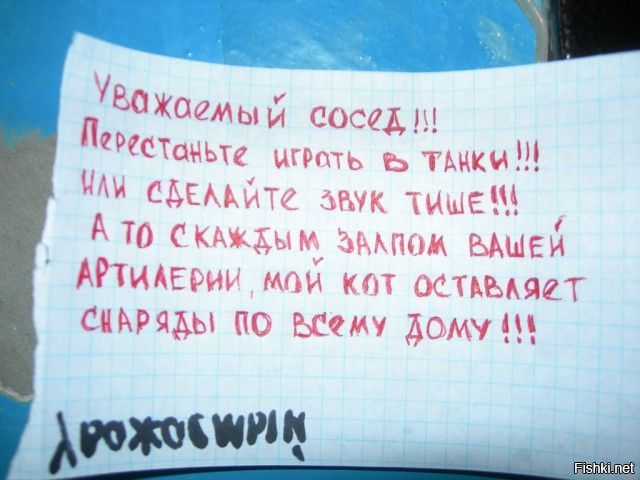 Уважаемый сосед!!!
Перестаньте играть в танки!!!
или сделайте звук тише!!!
А то с каждым залпом вашей
артилерии, мой кот оставляет
снаряды по всему дому!!!
Fishki.net